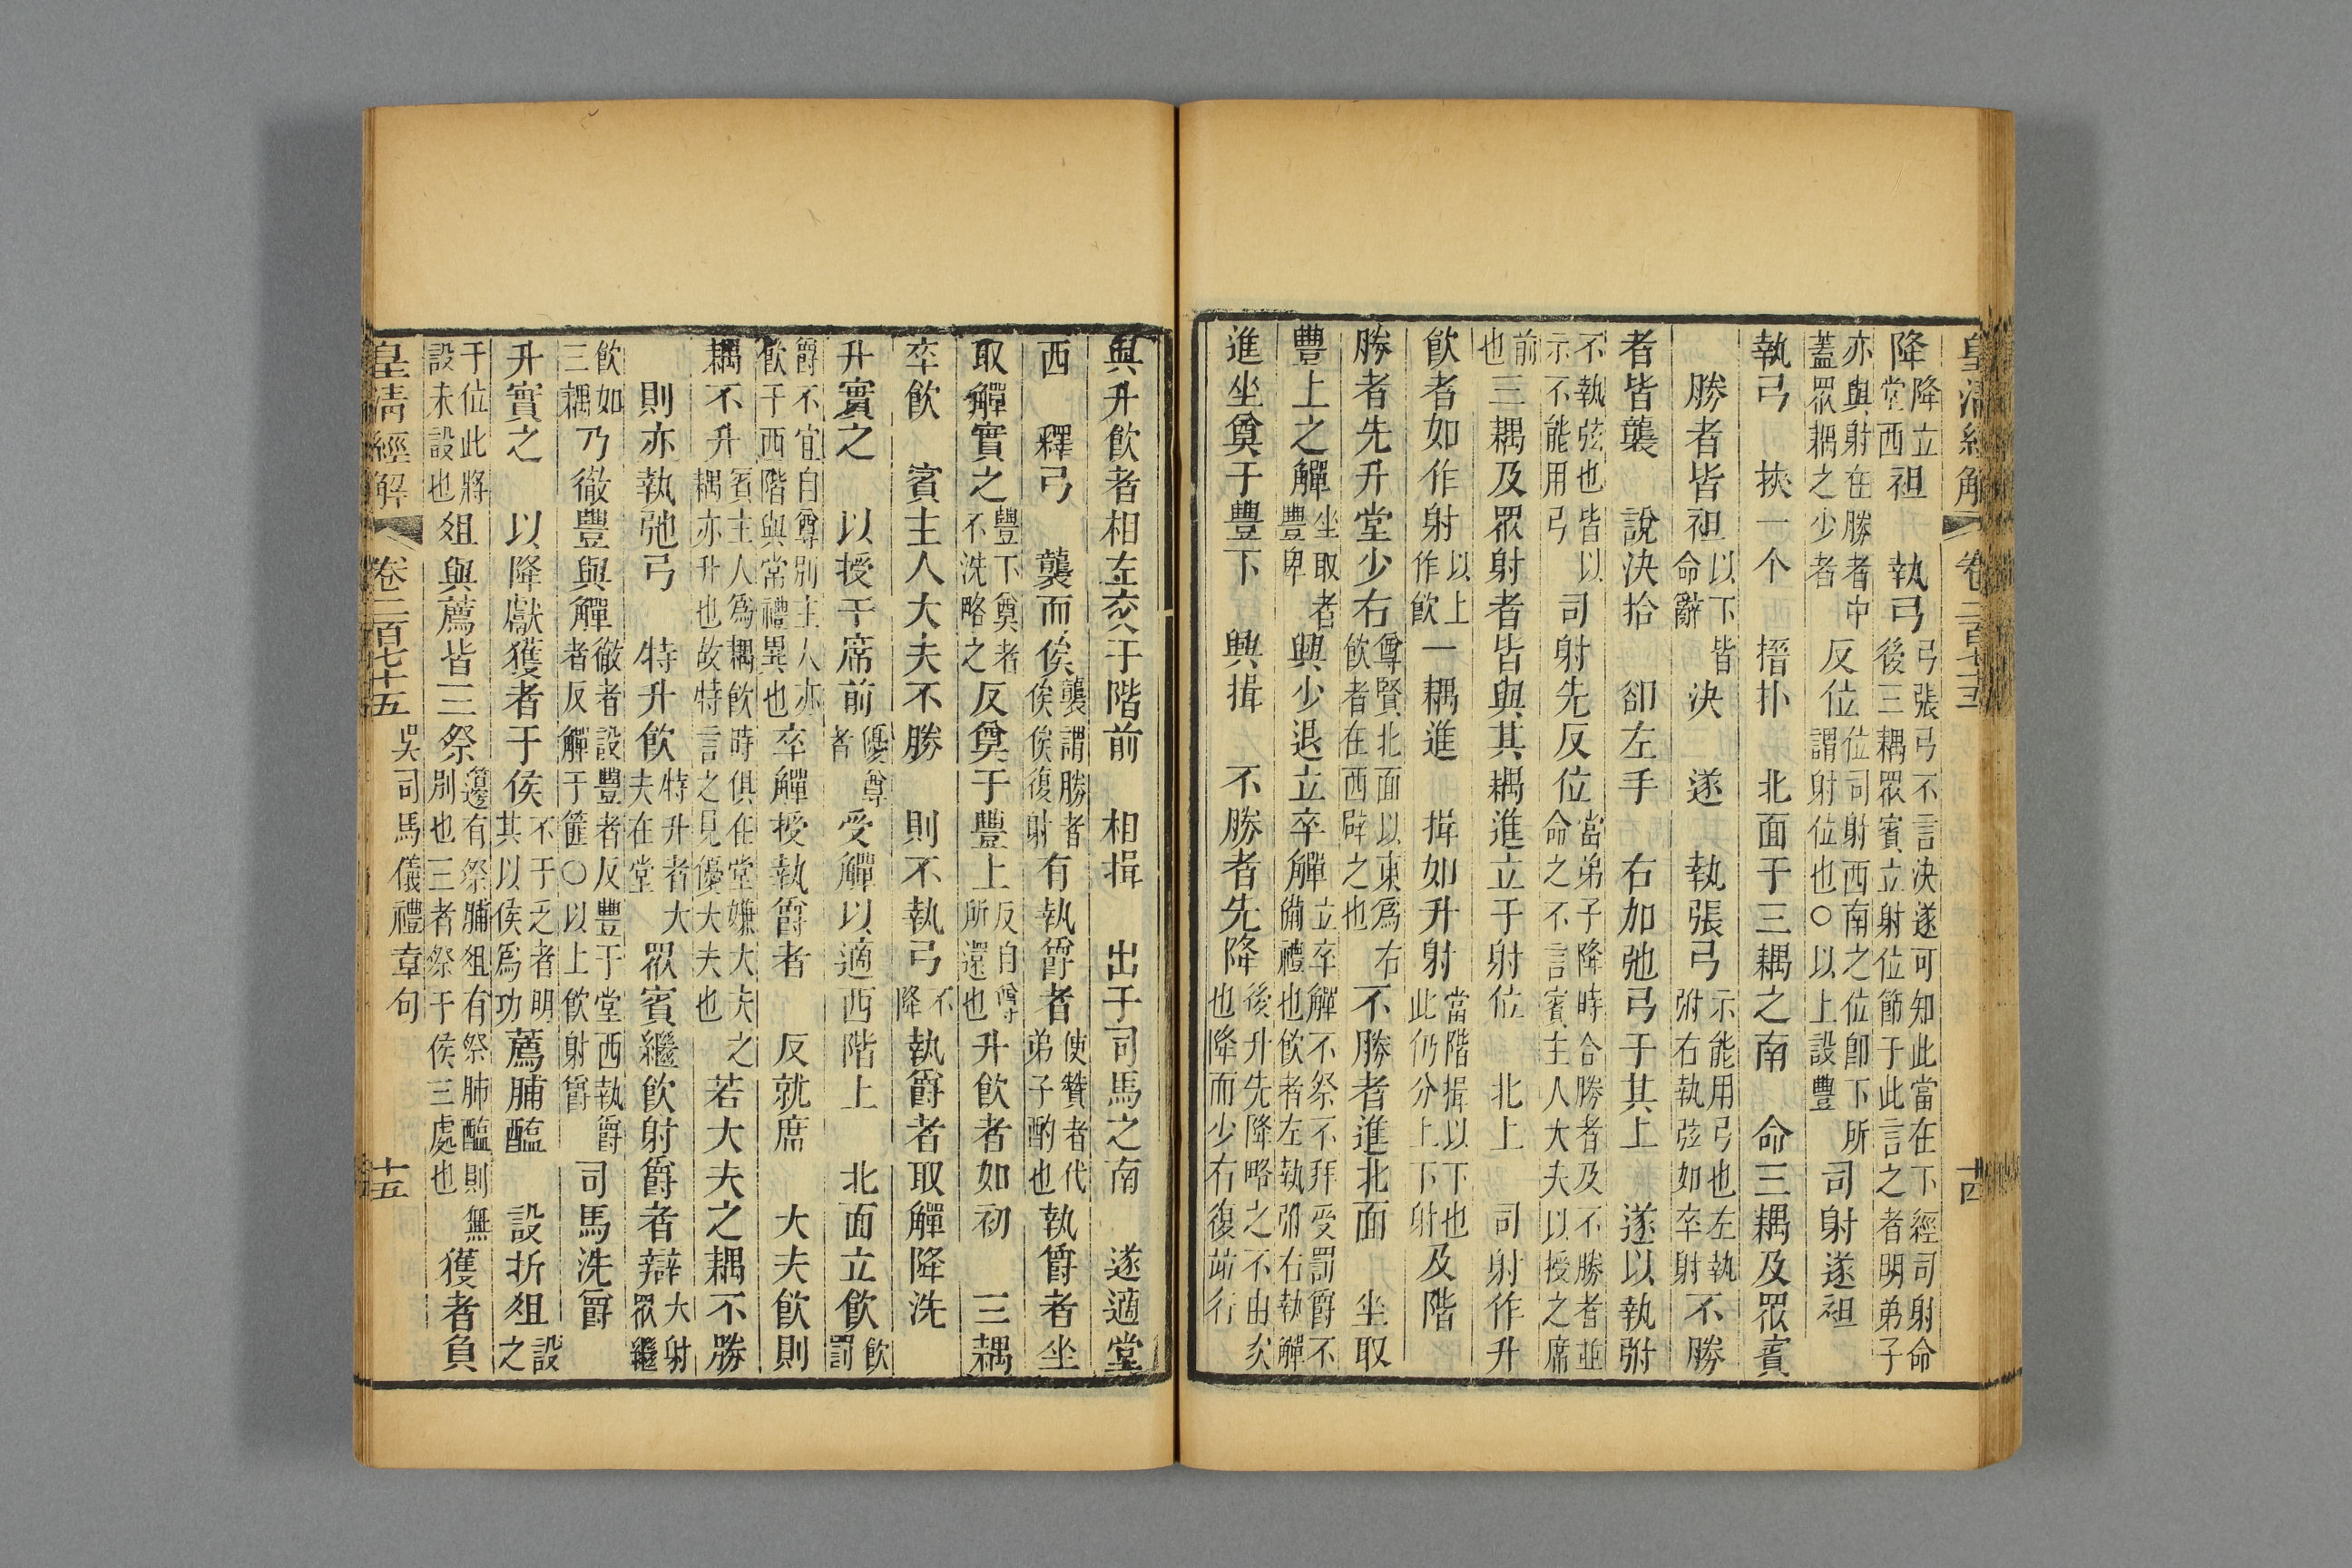 皇清經解 卷二百七十五 十四
降降立堂西袒 執弓弓張弓不言決遂可知此當在下經司射命後三耦眾賓立射位節于此言之者明弟子
亦與射在勝者中蓋眾耦之少者反位位司射西南之位卽下所謂射位也○以上設豐司射遂袒
執弓 挾一个 搢扑 北面于三耦之南 命三耦及眾賓
勝者皆袒以下皆命辭決遂 執張弓示能用弓也左執弣右執弦如卒射不勝
者皆襲 說決拾 卻左手 右加弛弓于其上 遂以執弣
不執弦也皆以示不能用弓司射先反位當弟子降時合勝者及不勝者並命之不言賓主人大夫以授之席
前也三耦及眾射者皆與其耦進立于射位 北上 司射作升
飲者如作射以上作飲一耦進 揖如升射當階揖以下也此仍分上下射及階
勝者先升堂少右尊賢北面以東爲右飲者在西辟之也不勝者進北面 坐取
豐上之觶坐取者豐卑興少退立卒觶立卒觶不祭不拜受罰爵不備禮也飲者左執弣右執觶
進坐奠于豐下 興揖 不勝者先降後升先降略之不由次也降而少右復並行
與升飲者相左交于階前 相揖 出于司馬之南 遂適堂
西 釋弓 襲而俟襲謂勝者俟俟復射有執爵者使贊者代弟子酌也執爵者坐
取觶實之豐下奠者不洗略之反奠于豐上反自尊所還也升飲者如初 三耦
卒飲 賓主人大夫不勝 則不執弓不降執爵者取觶降洗
升實之 以授于席前優尊者受觶以適西階上 北面立飲飲罰
爵不宜自尊別主人亦飲于西階與常禮異也卒觶授執爵者 反就席 大夫飲則
耦不升賓主人爲耦飲時俱在堂嫌大夫之耦亦升也故特言之見優大夫也若大夫之耦不勝
則亦執弛弓 特升飲特升者大夫在堂眾賓繼飲射爵者辯大射眾繼
飲如三耦乃徹豐與觶徹者設豐者反豐于堂西執爵者反觶于篚○以上飲射爵司馬洗爵
升實之 以降獻獲者于侯不于乏者明其以侯爲功薦脯醢 設折俎設之
于位此將設未設也俎與薦皆三祭籩有祭脯俎有祭肺醢則無別也三者祭于侯三處也獲者負
皇清經解 卷二百七十五 吳司馬儀禮章句 十五